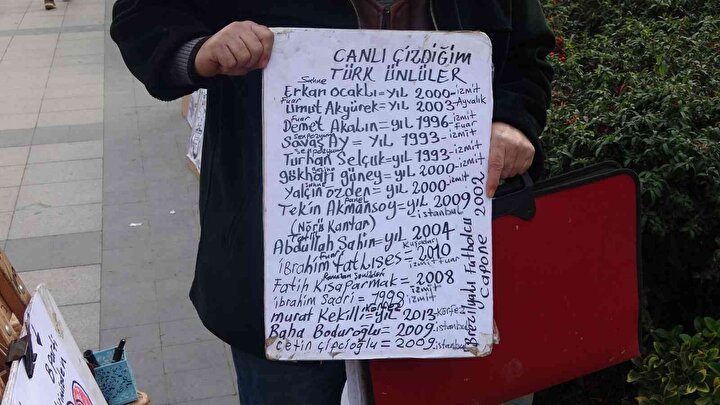 CANLI ÇİZDİĞİM
TÜRK ÜNLÜLER
Sahne
Erkan Ocaklı = yıl 2000 - izmit
Fuar
Umut Akyürek = yıl 2003 - Ayvalık
Fuar
Demet Akalın = yıl 1996 - izmit Fuar
Senpozyum
Savaş AY = yıl 1993 - izmit
Senpozyum
Turhan Selçuk = yıl 1993 - izmit
gökhan güney = yıl 2000 - izmit
Sahne
Yalçın özden = yıl 2000 - izmit
Tekin Akmansoy = yıl 2009 istanbul
(Nörü Kantar)
Abdullah Şahin = yıl 2004
Fuar
ibrahim tatlıses = 2010 izmit Fuar
Ramazan Şenlikleri
Fatih Kısaparmak = 2008 izmit
ibrahim Sadri = 1998 izmit
murat Kekilli = yıl 2013 - Körfez
Baha Boduroğlu = 2009 - istanbul
Çetin Çipcioğlu = 2009 - istanbul
Brezilyalı Futbolcu
CAPONE 2002